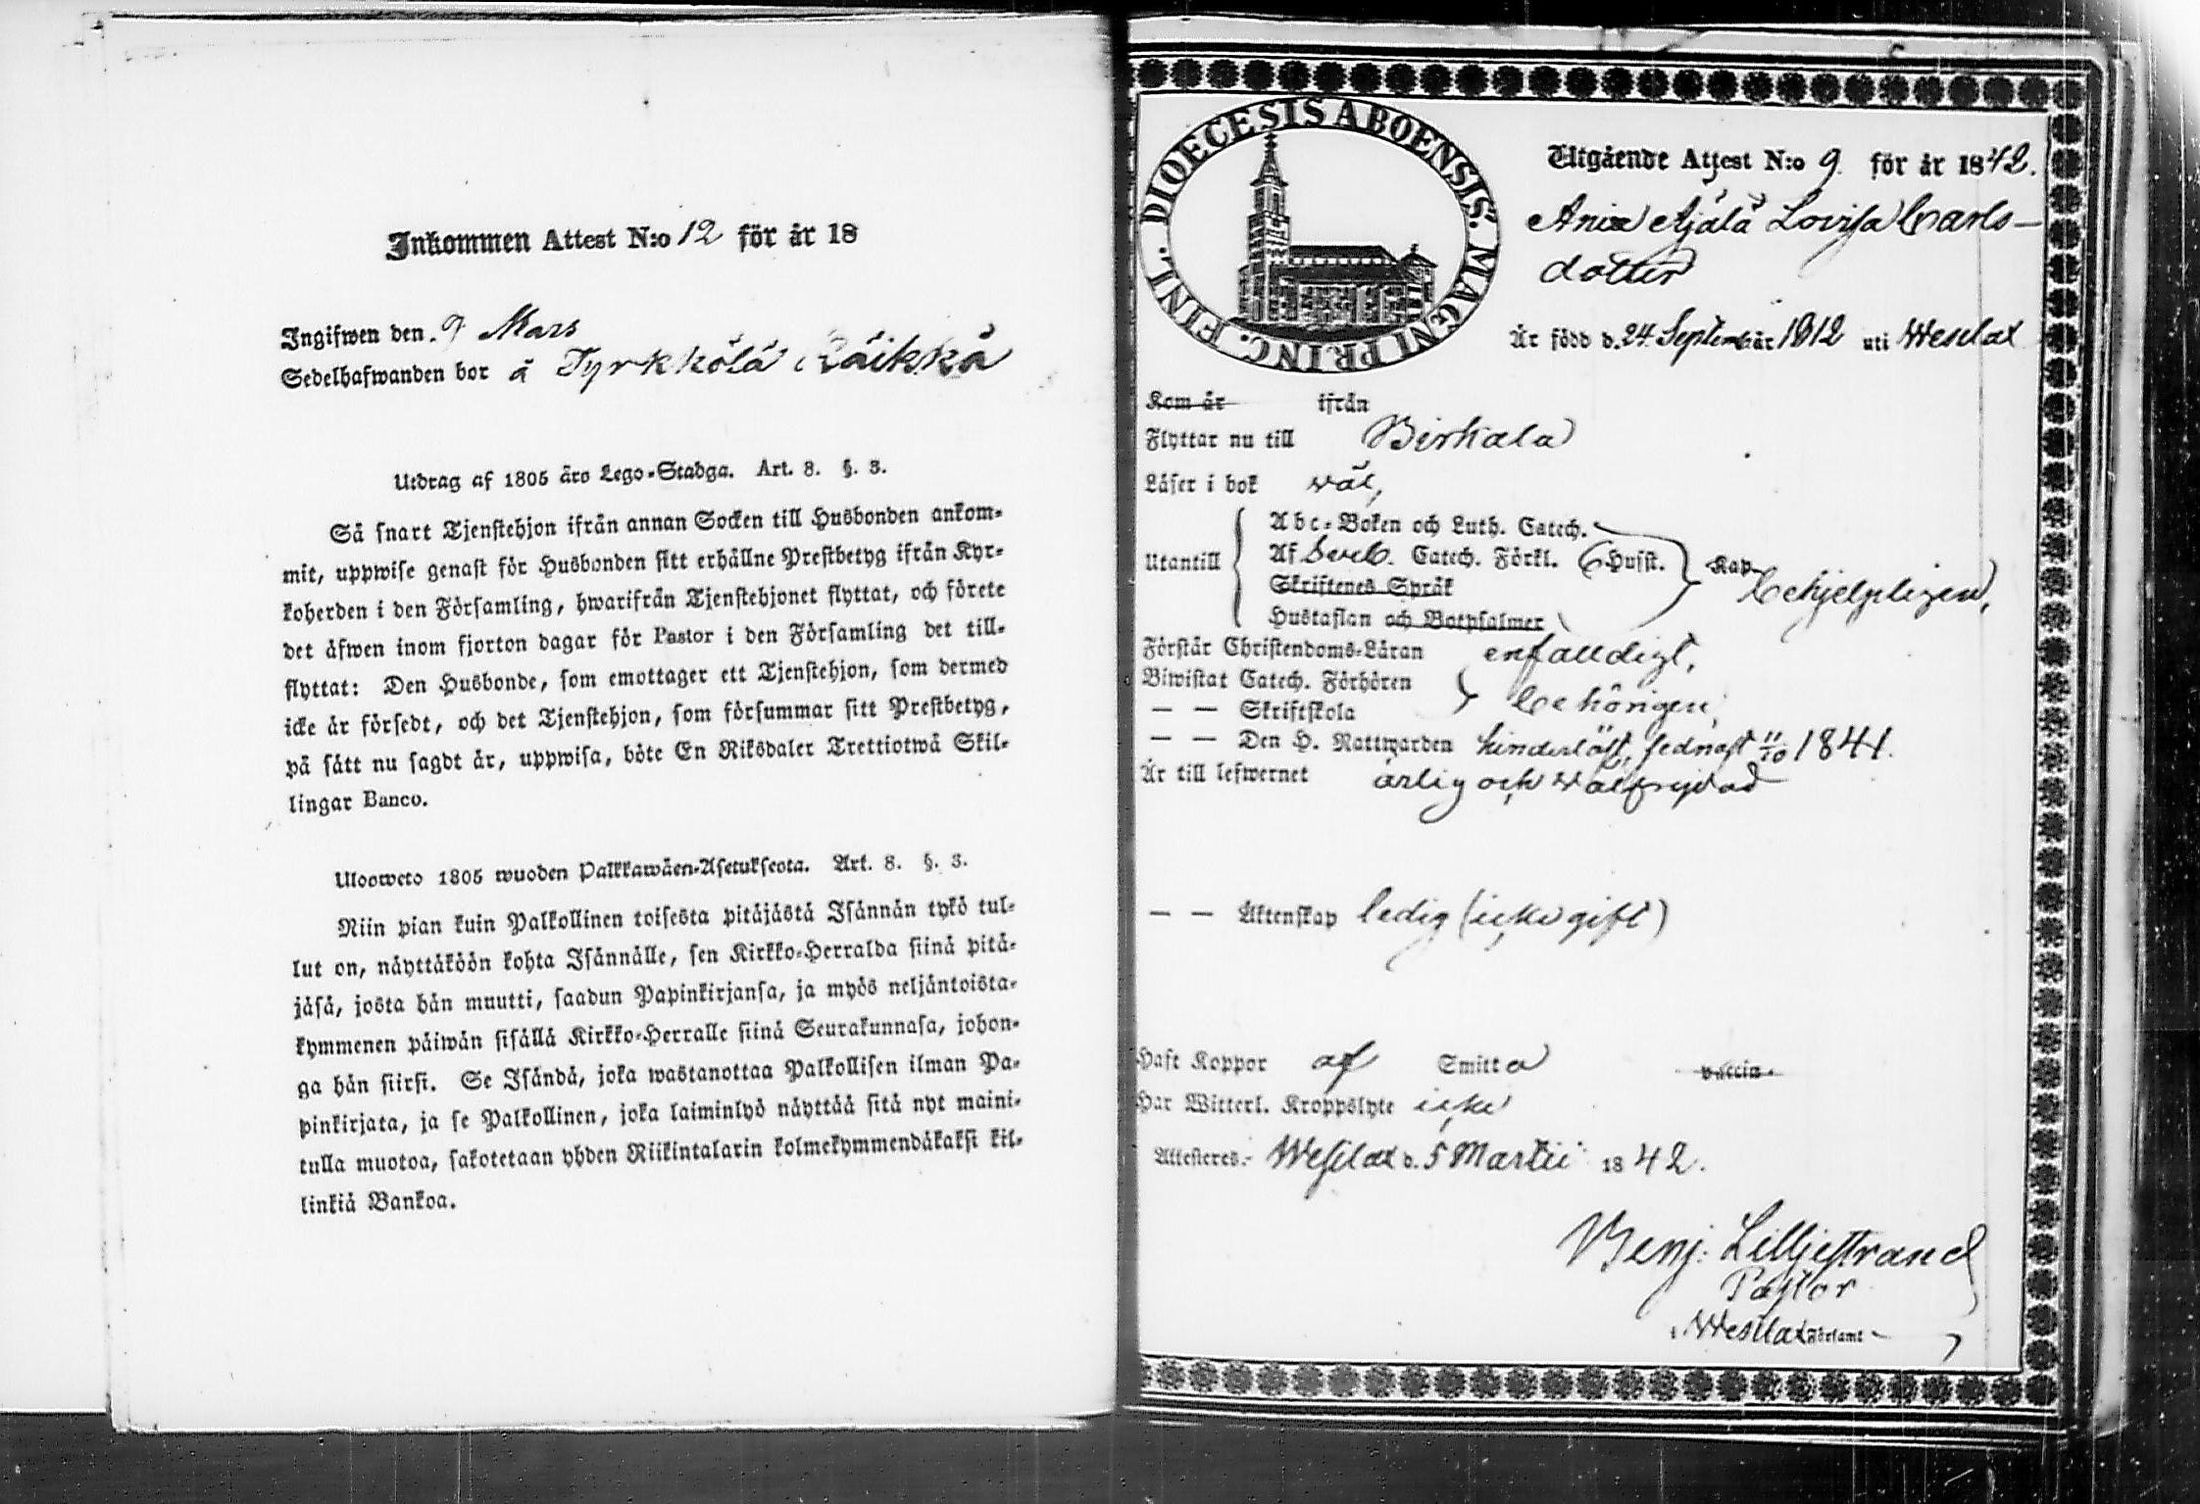 Inkommen Attest N:o 12 för år 18
Ingifwen den 9 Mars
Sedelhafwanden bor å Tyrkkölä Räikkä
Utdrag af 1805 års Lego-Stadga. Art. 8. §. 3.
Så snart Tjenstehjon ifrån annan Socken till Husbonden ankom-
mit, uppwise genast för Husbonden sitt erhållne Prestbetyg ifrån Kyr-
koherden i den Församling, hwarifrån Tjenstehjonet flyttat, och förete
det äfwen inom fjorton dagar för Pastor i den Församling det till-
flyttat: Den Husbonde, som emottager ett Tjenstehjon, som dermed
icke är försedt, och det Tjenstehjon, som försummar sitt Prestbetyg,
på sätt nu sagdt är, uppwisa, böte En Riksdaler Trettiotwå Skil-
lingar Banco.
Ulosweto 1805 wuoden Palkkawäen-Asetuksesta. Art. 8. §. 3.
Niin pian kuin Palkollinen toisesta pitäjästä Isännän tykö tul-
lut on, näyttäköön kohta Isännälle, sen Kirkko-Herralda siinä pitä-
jäsä, josta hän muutti, saadun Papinkirjansa, ja myös neljäntoista-
kymmenen päiwän sisällä Kirkko-Herralle siinä Seurakunnasa, johon-
ga hän siirsi. Se Isändä, joka wastanottaa Palkollisen ilman Pa-
pinkirjata, ja se Palkollinen, joka laiminlyö näyttää sitä nyt maini-
tulla muotoa, sakotetaan yhden Riikintalarin kolmekymmendäkaksi kil-
linkiä Bankoa.
DIOECESIS ABOENSIS. MAGNI PRINC. FINL.
Utgående Attest N:o 9 för år 1842.
Äjälä Lovisa Carls-
dotter
Är född d. 24 September 1812 uti Wesilax
Kom år ifrån
Flyttar nu till Birkala
Läser i bok wäl,
Utantill
Abc-Boken och Luth. Catech.
Af Sveb. Catech. Förkl. 6 Husst. Kap. behjelpligen,
Skriftenes Språk
Hustaflan och Botpsalmer
Förstår Christendoms-Läran enfaldigt,
Biwistat Catech. Förhören
— — Skriftskola behörigen,
— — Den H. Nattwarden hinderlöst, sednast 11/10 1841.
Är till lefwernet ärlig och wälfrejdad
— — Äktenskap ledig (icke gift)
Haft Koppor af Smitta vaccin.
Har Witterl. Kroppslyte icke
Attesteras. Wesilax d. 5 Martii 1842.
Benj: Lilljestrand
Pastor
Wesilax Församl